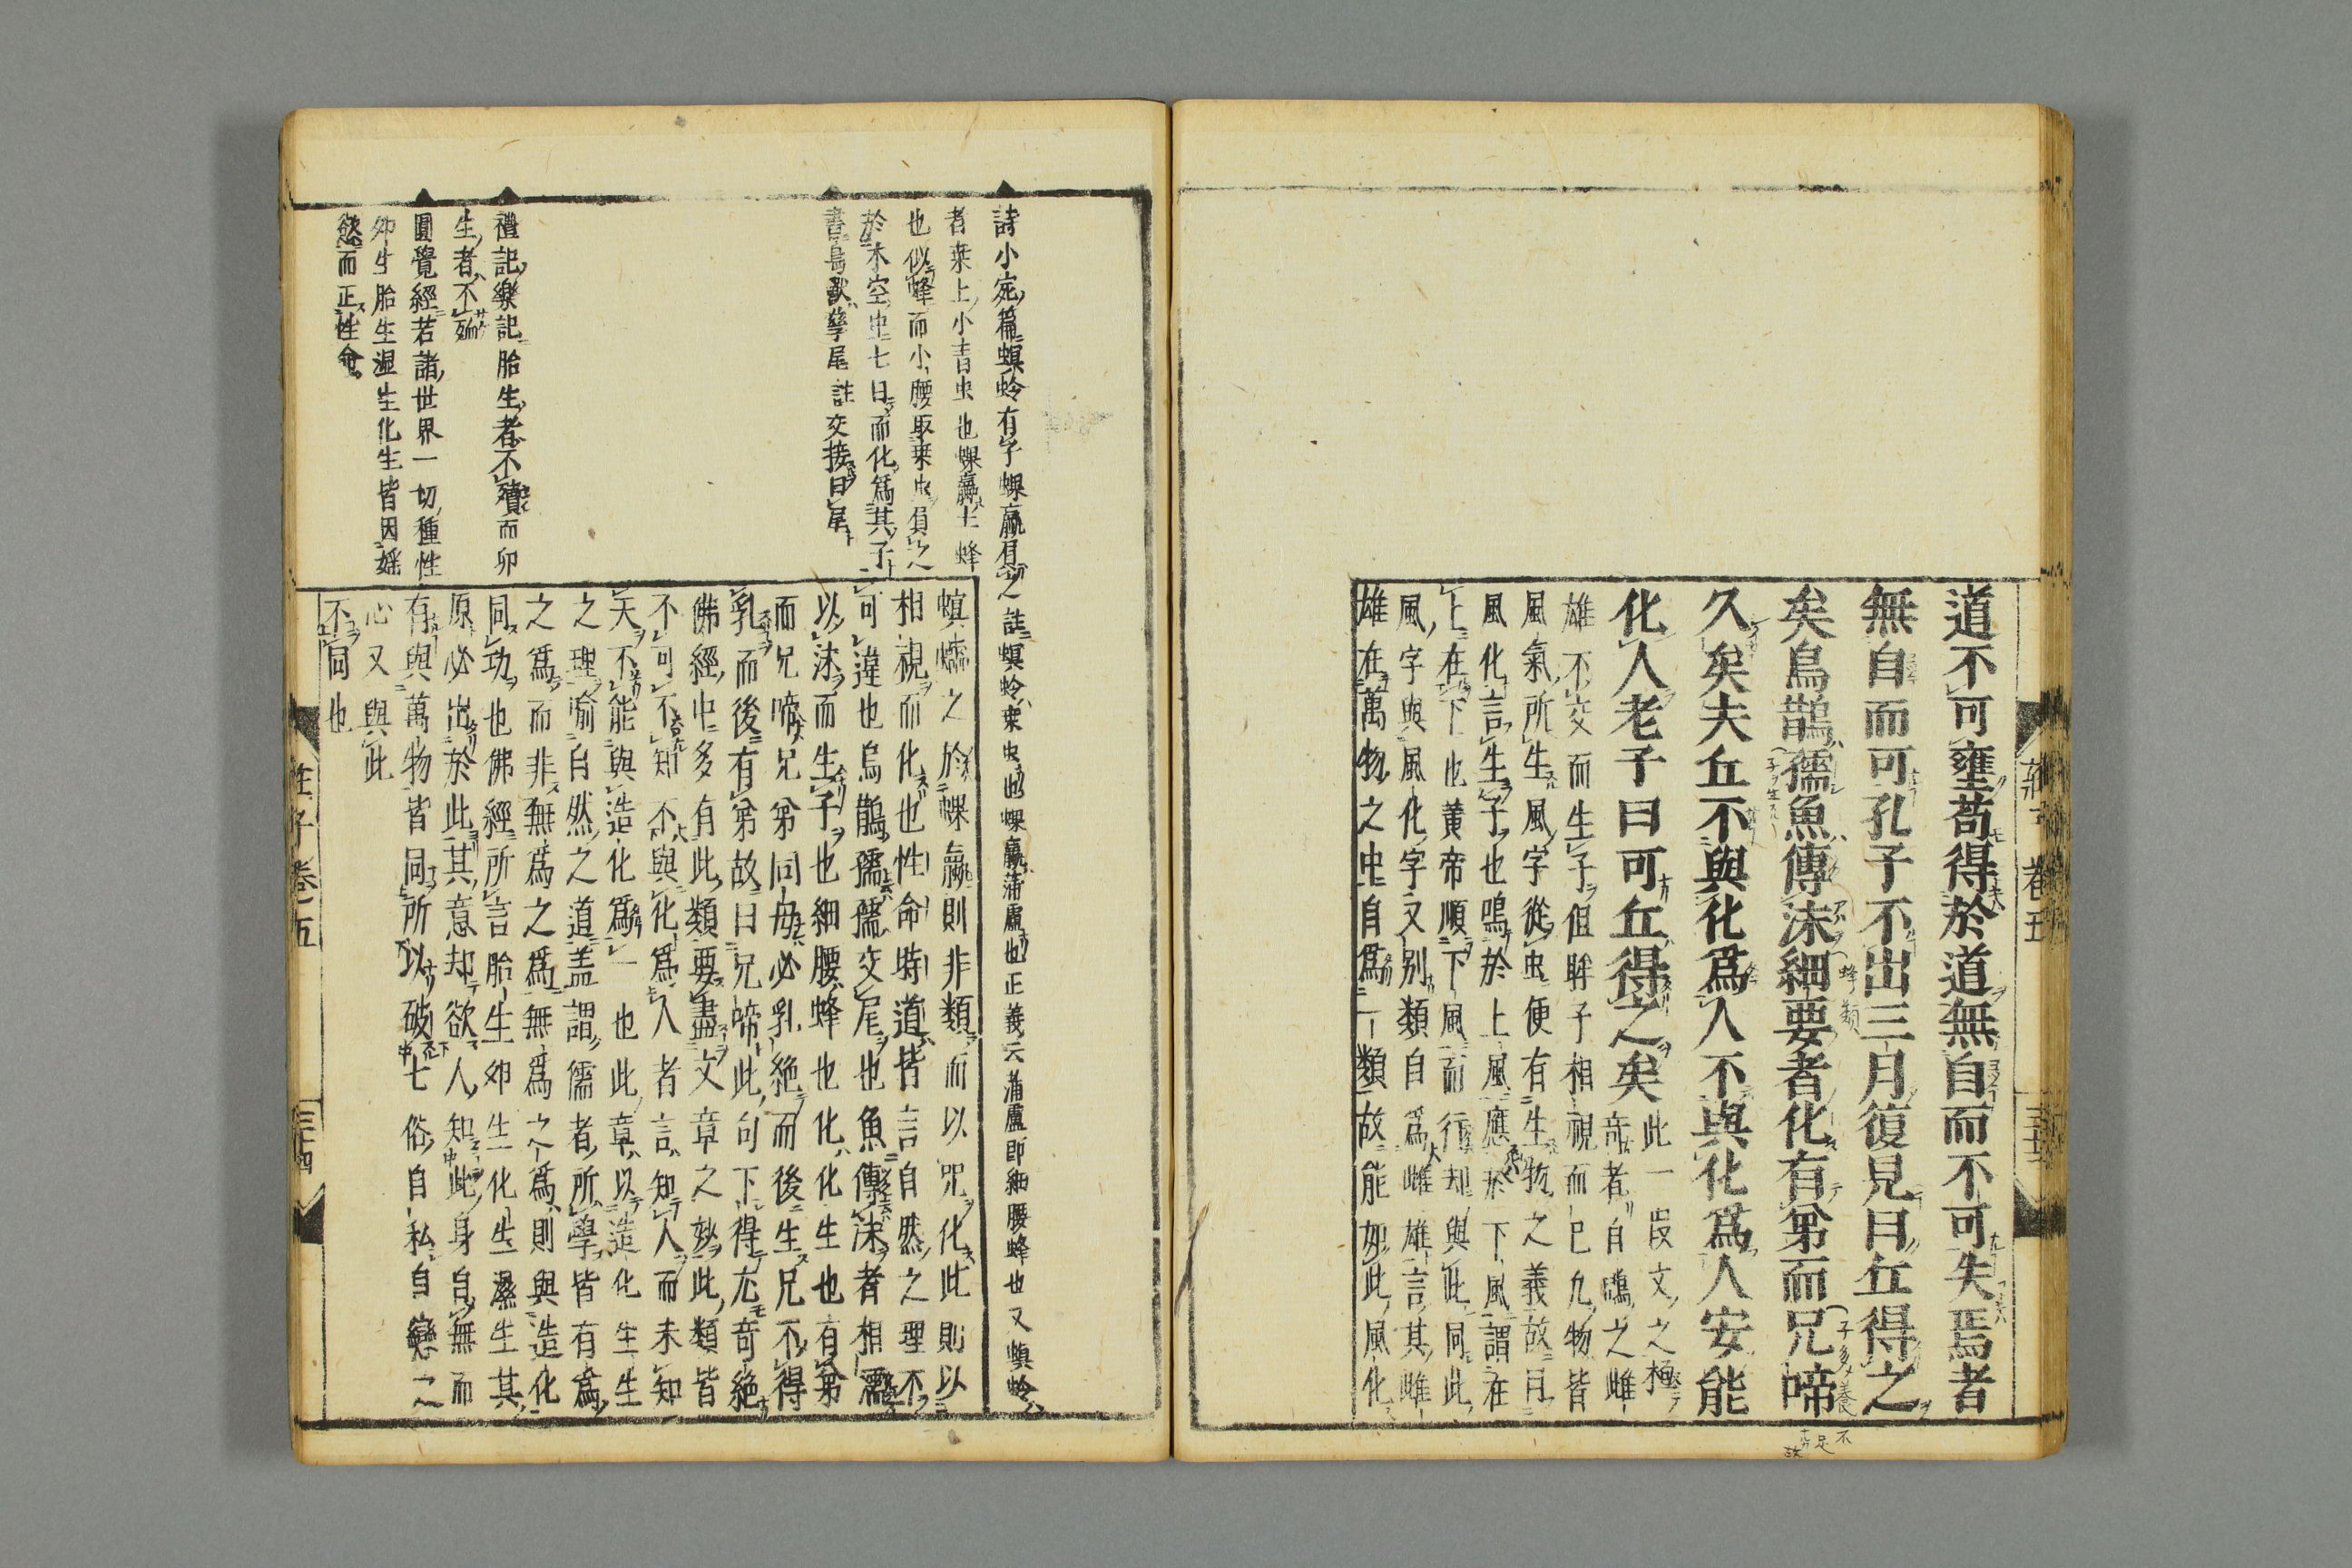 莊子 卷五
道不可壅苟得於道無自而不可失焉者
無自而可孔子不出三月復見曰丘得之
矣烏鵲孺魚傳沫細要者化有弟而兄啼
久矣夫丘不與化爲人不與化爲人安能
化人老子曰可丘得之矣
此一段文之極
奇者自鶂之雌
雄不交而生子但眸子相視而已凢物皆
風氣所生風字從虫便有生物之義故曰
風化言生子也鳴於上風應於下風謂在
上在下也黄帝順下風而行却與此同此
風字與風化字又別類自爲雌雄言其雌
雄在萬物之中自爲一類故能如此風化
詩小宛篇螟蛉有子蜾蠃負之註螟蛉桒虫也蜾蠃蒲盧也正義云蒲盧即細腰蜂也又螟蛉
者桒上小青虫也蜾蠃土蜂
也似蜂而小腰取桒虫負之
於木空中七日而化爲其子
書鳥獸孳尾註交接曰尾
禮記樂記胎生者不殰而卵
生者不殈
圓覺經若諸世界一切種性
卵生胎生濕生化生皆因婬
慾而正性命
螟蠕之於蜾蠃則非類而以呪化此則以
相視而化也性命時道皆言自然之理不
可違也烏鵲孺孺交尾也魚傳沫者相濡
以沫而生子也細腰蜂也化化生也有弟
而兄啼兄弟同母必乳絶而後生兄不得
乳而後有弟故曰兄啼此句下得尤奇絶
佛經中多有此類要盡文章之妙此類皆
不可不知不與化爲人者言知人而未知
天不能與造化爲一也此章以造化生生
之理喻自然之道盖謂儒者所學皆有爲
之爲而非無爲之爲無爲之爲則與造化
同功也佛經所言胎生卵生化生濕生其
原必出於此其意却欲人知此身自無而
有與萬物皆同所以破世俗自私自戀之
心又與此
不同也
莊子卷五
三十四